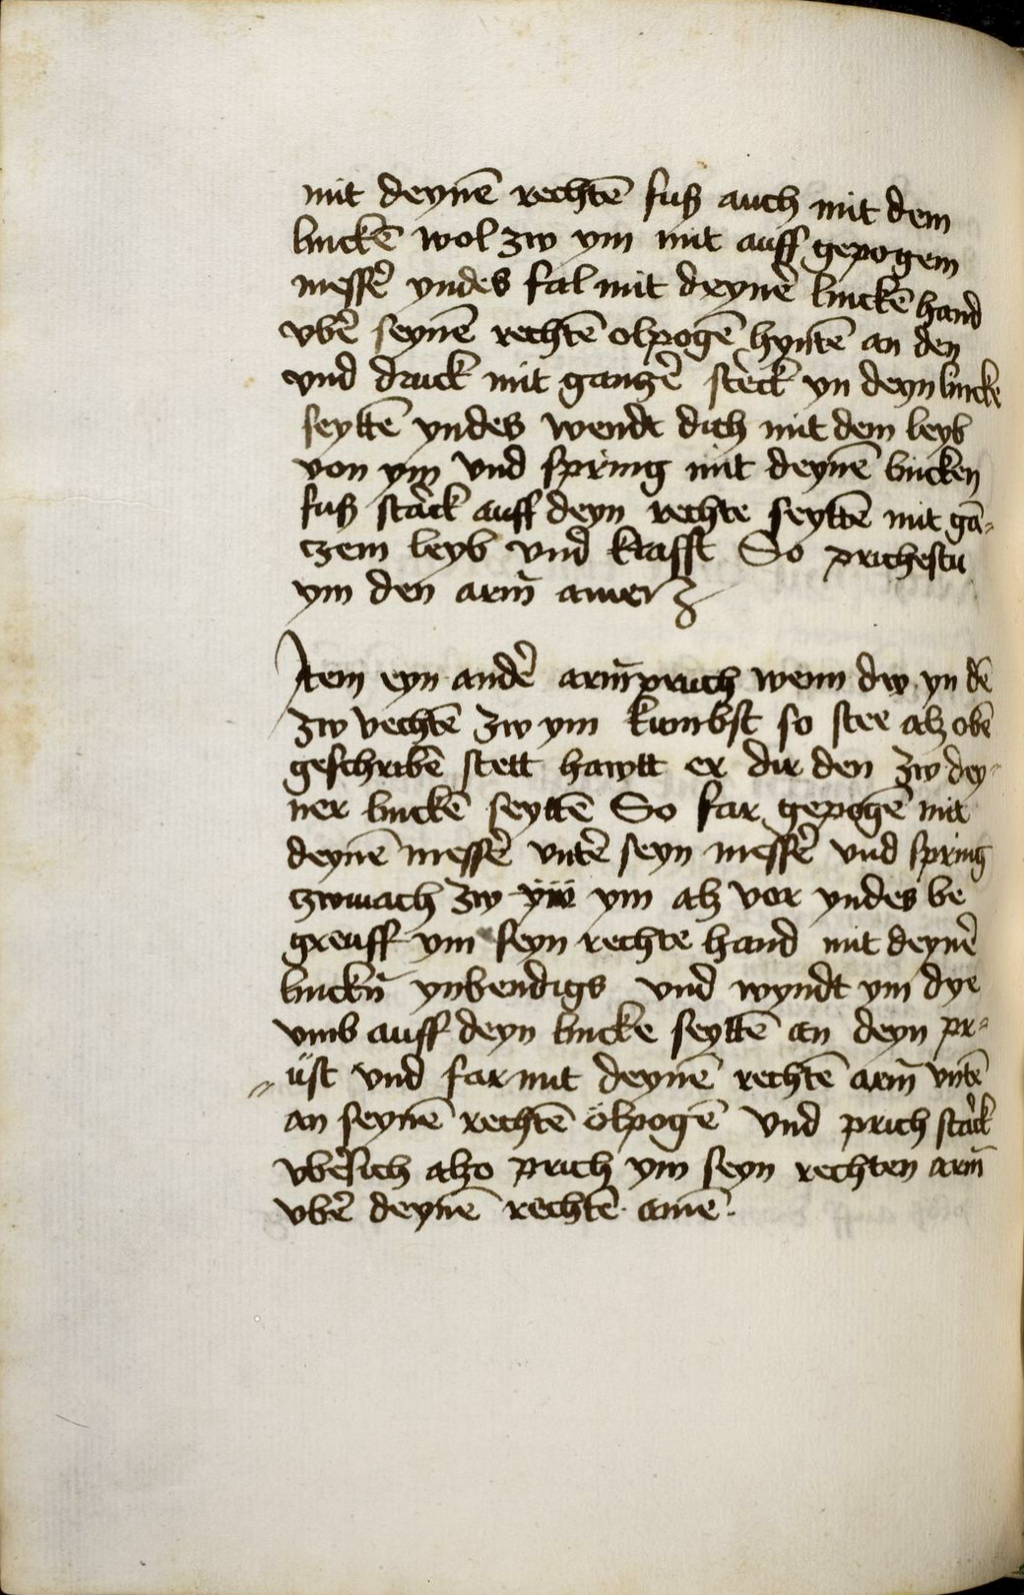 mit deynē rechtē fuß auch mit dem
linckē wol zw ym mit auff gepogem
messer̄ yndes fal mit deyner̄ linckē hand
vber̄ seynē rechtē olpogē hyntē an den
vnd druck mit ganzer̄ sterck yn deyn lincke
seyttē yndes wendt dich mit dem leyb
von ym vnd spring mit deynē lincken
fuß starck auff deyn rechte seyttē mit gā⸗
czem leyb vnd krafft So prichestu
ym den arm̄ amen
Item eyn ander̄ arm̄pruch wenn dw yn dē
zw vechtē zw ym kumbst so stee alz obē
geschribē stett hawtt er dir den zw dey⸗
ner linckē seyttē So far gepogē mit
deynē messer̄ vnter̄ seyn messer̄ vnd spring
czwuach zw ym alz vor yndes be
greuff ym seyn rechte hand mit deyner̄
linckn̄ ynbendigs vnd wyndt ym dye
vmb auff deyn lincke seyttē an deyn pr⸗
⸗üst vnd far mit deynē rechtē arm̄ vntē
an seynē rechtē ölpogē vnd prich starck
vber̄sich alzo prich ym seyn rechten arm̄
vber̄ deynē rechtē amē